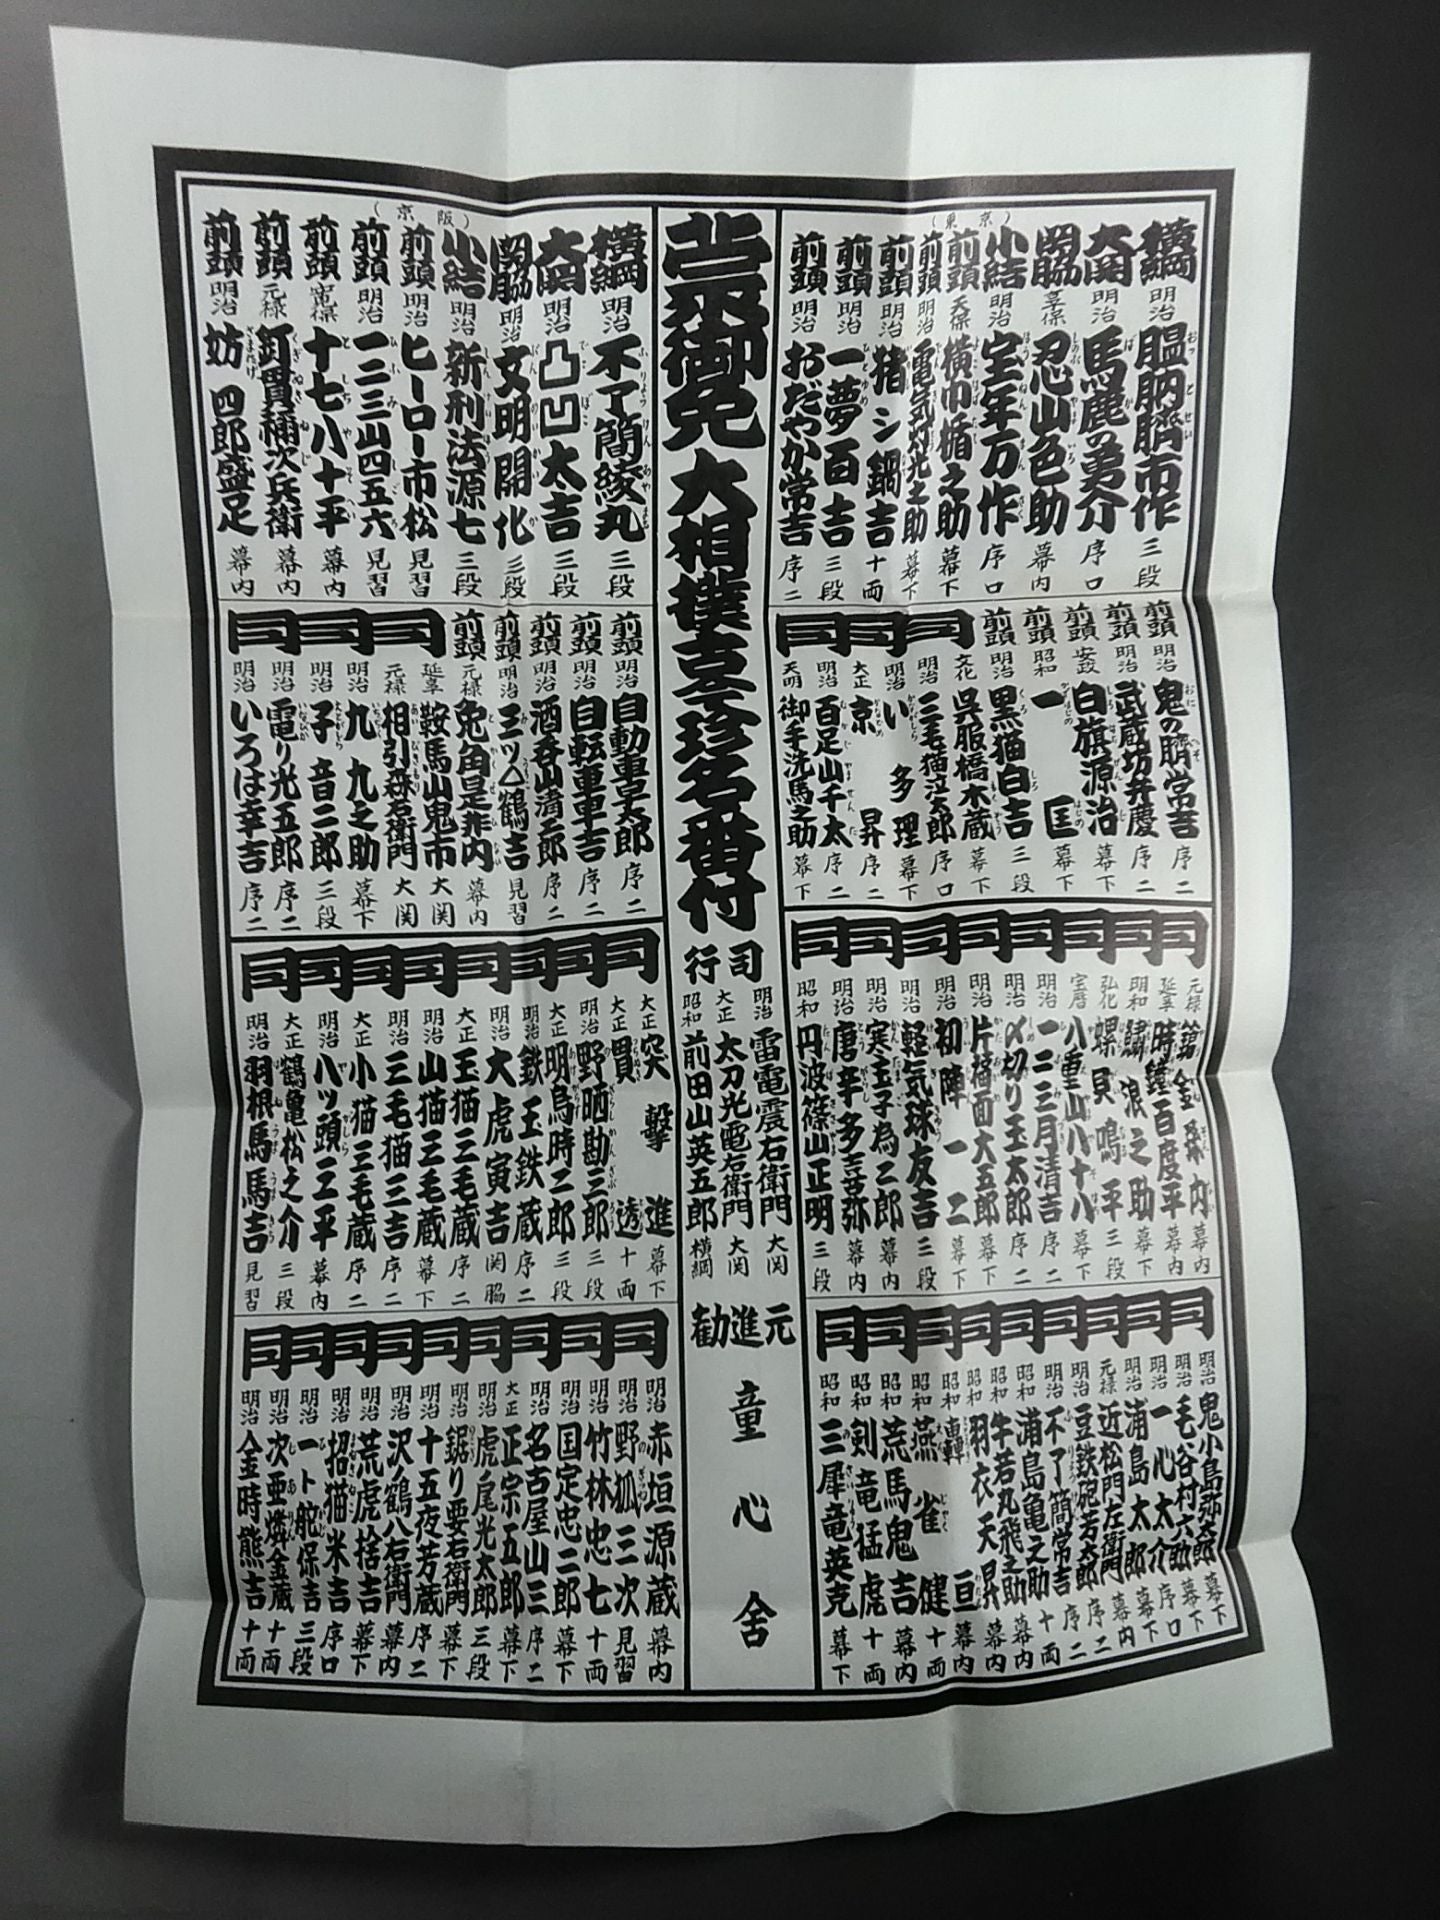 (東京)
横綱 明治 膃肭臍市作 三段
大関 明治 馬鹿勇介 序口
関脇 享保 忍山色助 幕内
小結 明治 宝年万作 序口
前頭 天保 横巾楯之助 幕下
前頭 明治 電気灯光之助 幕下
前頭 明治 猪シ鍋吉 十両
前頭 明治 一夢百吉 三段
前頭 明治 おだやか常吉 序二
前頭 明治 鬼の臍常吉 序二
前頭 明治 武蔵坊弁慶 序二
前頭 安政 白旗源治 幕下
前頭 昭和 一 匡 幕下
前頭 明治 黒猫白吉 三段
同 文化 呉服橋木蔵 幕下
同 明治 三毛猫泣太郎 序口
同 明治 い 多理 幕下
同 大正 京 昇 序二
同 明治 百足山千太 序二
同 天明 御手洗馬之助 幕下
同 元禄 幕内
同 延享 時鐘百度平 幕内
同 明和 浪之助 幕下
同 弘化 螺貝鳴平 三段
同 宝暦 八重山八十八 幕下
同 明治 一二三月清吉 序二
同 明治 〆切り玉太郎 序二
同 明治 片福面大五郎 幕下
同 明治 初陣一二 幕下
同 明治 軽気球友吉 三段
同 明治 寒玉子為二郎 幕内
同 明治 唐辛多喜弥 幕内
同 昭和 丹波篠山正明 三段
同 明治 鬼小島弥太郎 幕下
同 明治 毛谷村六助 幕下
同 明治 一心太介 序口
同 明治 浦島太郎 幕下
同 元禄 近松門左衛門 幕内
同 明治 豆鉄砲芳太郎 序二
同 明治 不了簡常吉 序二
同 昭和 浦島亀之助 十両
同 昭和 牛若丸飛之助 幕内
同 昭和 羽衣天昇 幕内
同 昭和 轟 亘 幕内
同 昭和 燕雀健 十両
同 昭和 荒馬鬼吉 幕内
同 昭和 剣竜猛虎 十両
同 昭和 三犀竜英克 幕下
蒙御免 大相撲古今珍名番付
行司
明治 雷電震右衛門 大関
大正 太刀光電右衛門 大関
昭和 前田山英五郎 横綱
勧進元
童心舎
(京阪)
横綱 明治 不了簡綾丸 三段
大関 明治 凸凹太吉 三段
関脇 明治 文明開化 三段
小結 明治 新刑法源七 三段
前頭 明治 ヒーロー市松 見習
前頭 明治 一二三山四五六 見習
前頭 寛保 十七八十平 幕内
前頭 元禄 釘貫桶次兵衛 幕内
前頭 明治 妨 四郎盛足 幕内
前頭 明治 自動車早太郎 序二
前頭 明治 自転車車吉 序二
前頭 明治 酒呑山清三郎 序二
前頭 明治 三ツ△鶴吉 見習
前頭 元禄 兎角是非内 幕内
同 延享 鞍馬山鬼市 大関
同 元禄 相引森右衛門 大関
同 明治 九 九之助 幕下
同 明治 子 音二郎 三段
同 明治 電り光五郎 序二
同 明治 いろは幸吉 序二
同 大正 突撃進 幕下
同 大正 貫 透 十両
同 明治 野晒勘三郎 三段
同 大正 明烏時二郎 三段
同 明治 鉄玉鉄蔵 序二
同 明治 大虎寅吉 関脇
同 大正 王猫三毛蔵 序二
同 明治 山猫三毛蔵 幕下
同 明治 三毛猫三吉 序二
同 大正 小猫三毛蔵 序二
同 明治 八ッ頭工平 幕内
同 大正 鶴亀松之介 三段
同 明治 羽根馬馬吉 見習
同 明治 赤垣源蔵 幕内
同 明治 野狐三次 見習
同 明治 竹林忠七 十両
同 明治 国定忠二郎 幕下
同 明治 名古屋山三 序二
同 大正 正宗五郎 幕下
同 明治 虎ノ尾光太郎 三段
同 明治 鋸り要右衛門 幕下
同 明治 十五夜芳蔵 序二
同 明治 沢ノ鶴八右衛門 幕内
同 明治 荒虎捨吉 幕下
同 明治 招猫米吉 序口
同 明治 一ト舵保吉 三段
同 明治 次亜燐金蔵 十両
同 明治 金時熊吉 十両